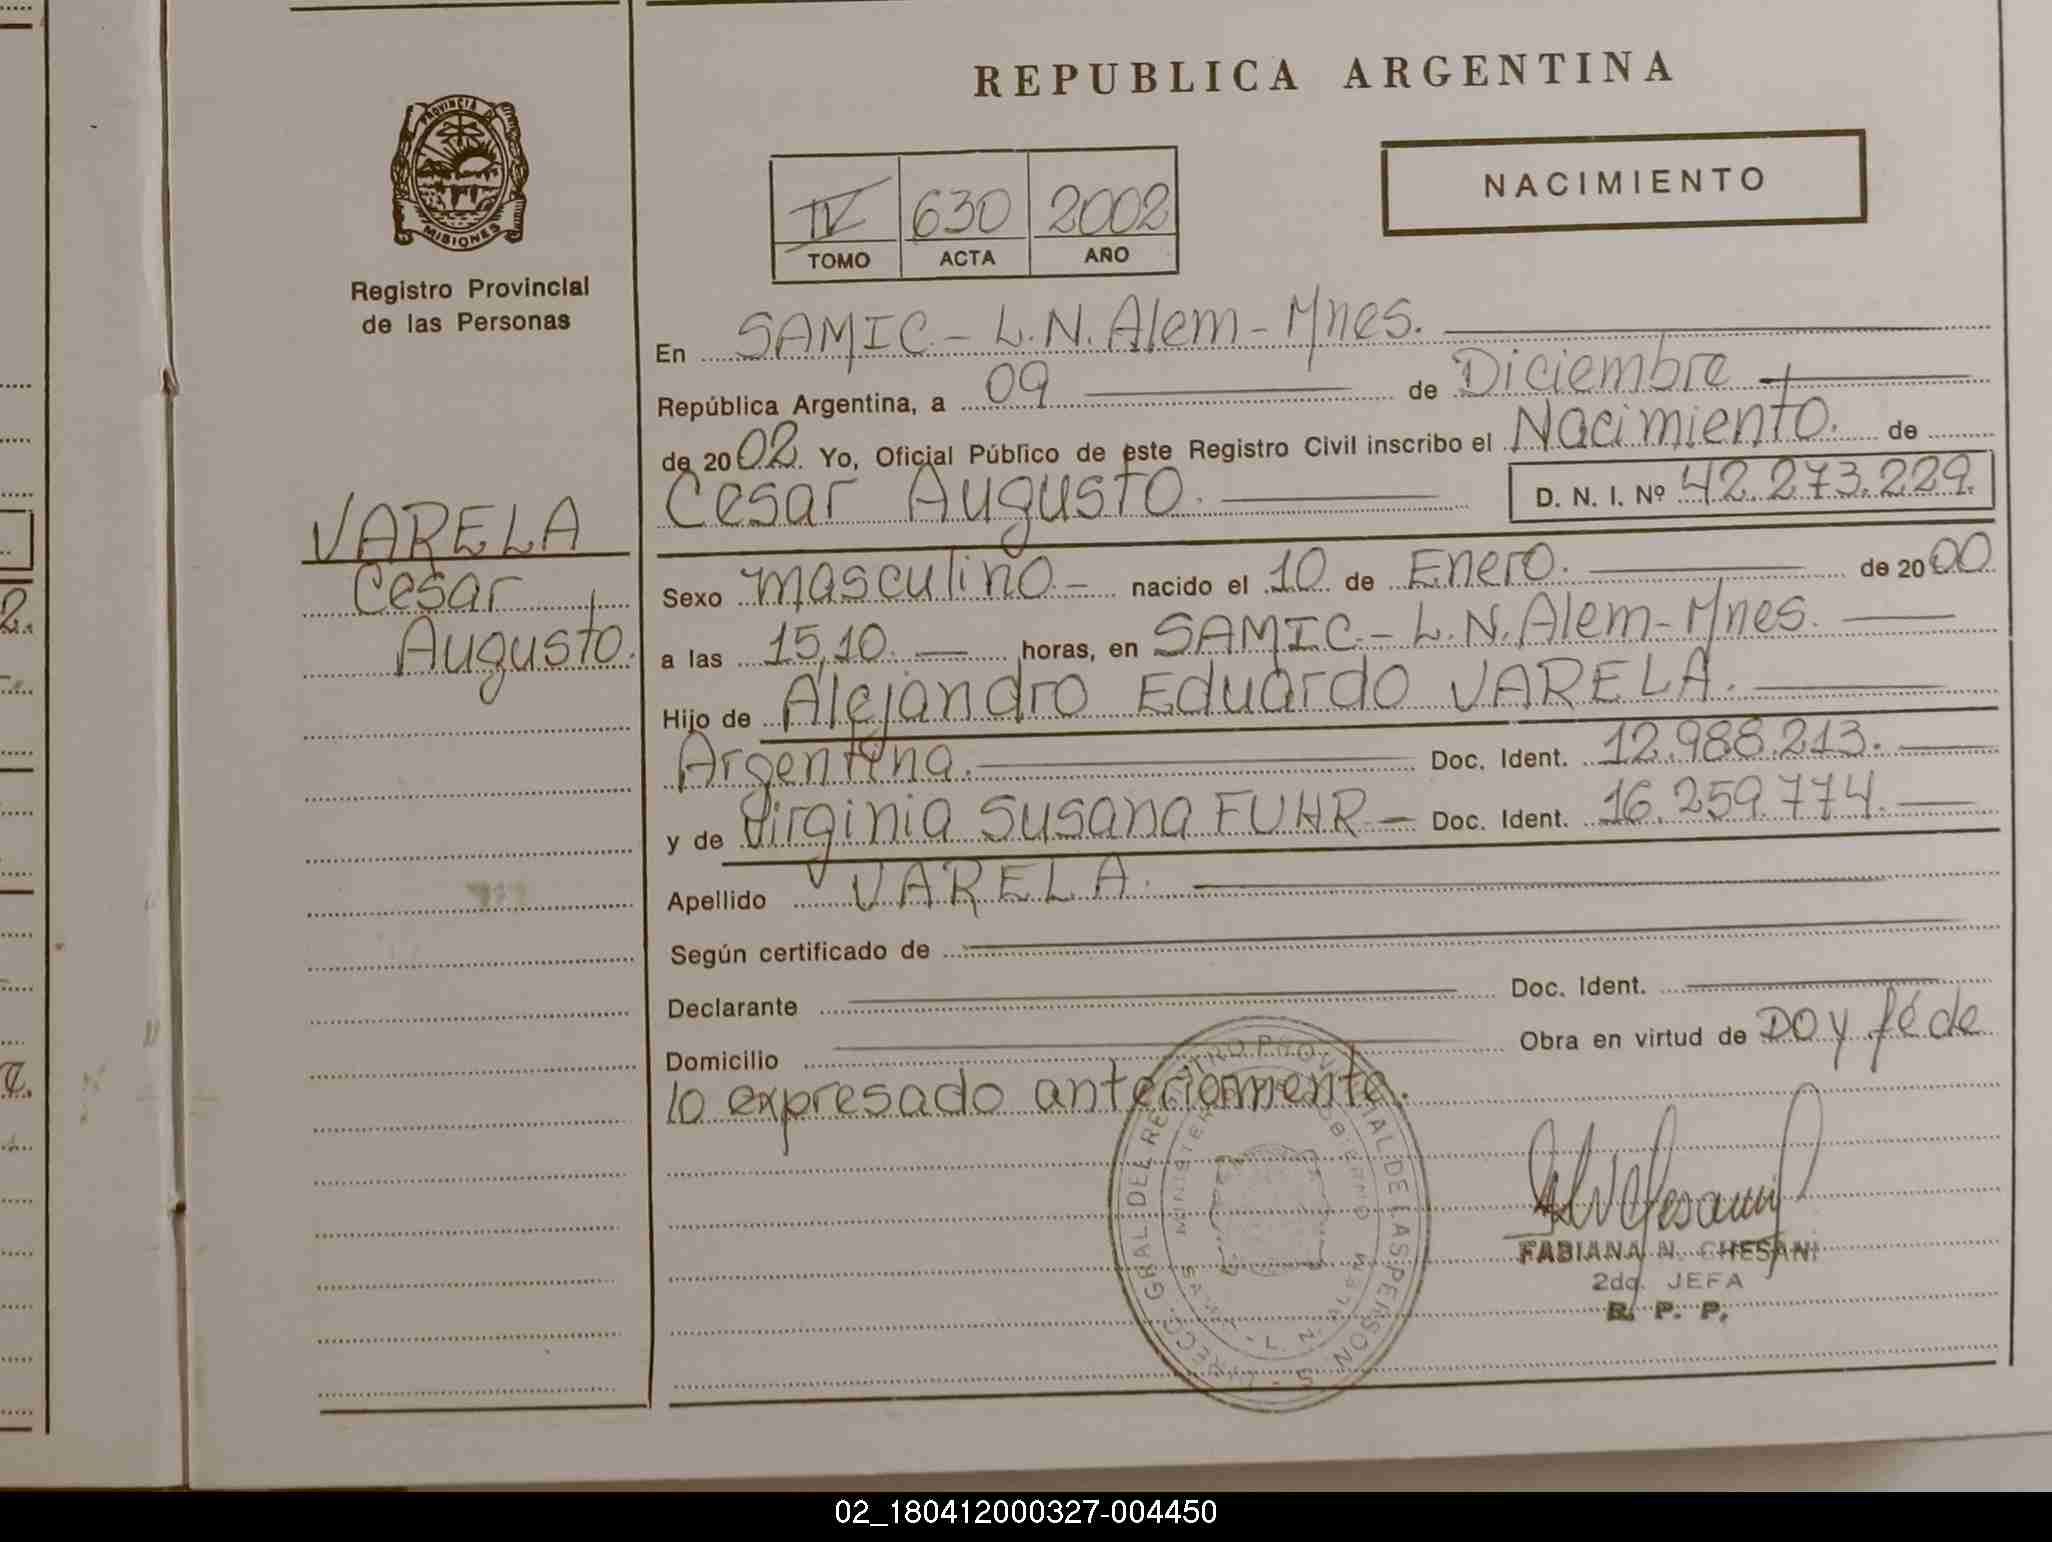 REPUBLICA ARGENTINA
PROVINCIA DE
MISIONES
Registro Provincial
de las Personas
NACIMIENTO
IV 630 2002
TOMO ACTA AÑO
En SAMIC - L.N. Alem - Mnes.
República Argentina, a 09 de Diciembre
de 2002. Yo, Oficial Público de este Registro Civil inscribo el Nacimiento. de
Cesar Augusto. D. N. I. Nº 42.273.229.
VARELA
Cesar
Augusto.
Sexo masculino - nacido el 10 de Enero. de 2000
a las 15,10. horas, en SAMIC - L.N. Alem - Mnes.
Hijo de Alejandro Eduardo VARELA.
Argentina. Doc. Ident. 12.988.213.
y de Virginia Susana FUHR - Doc. Ident. 16.259.774.
Apellido VARELA.
Según certificado de
Declarante Doc. Ident.
Domicilio Obra en virtud de DOY fé de
lo expresado anteriormente.
FABIANA N. CHESANI
2da. JEFA
R. P. P.
02_180412000327-004450